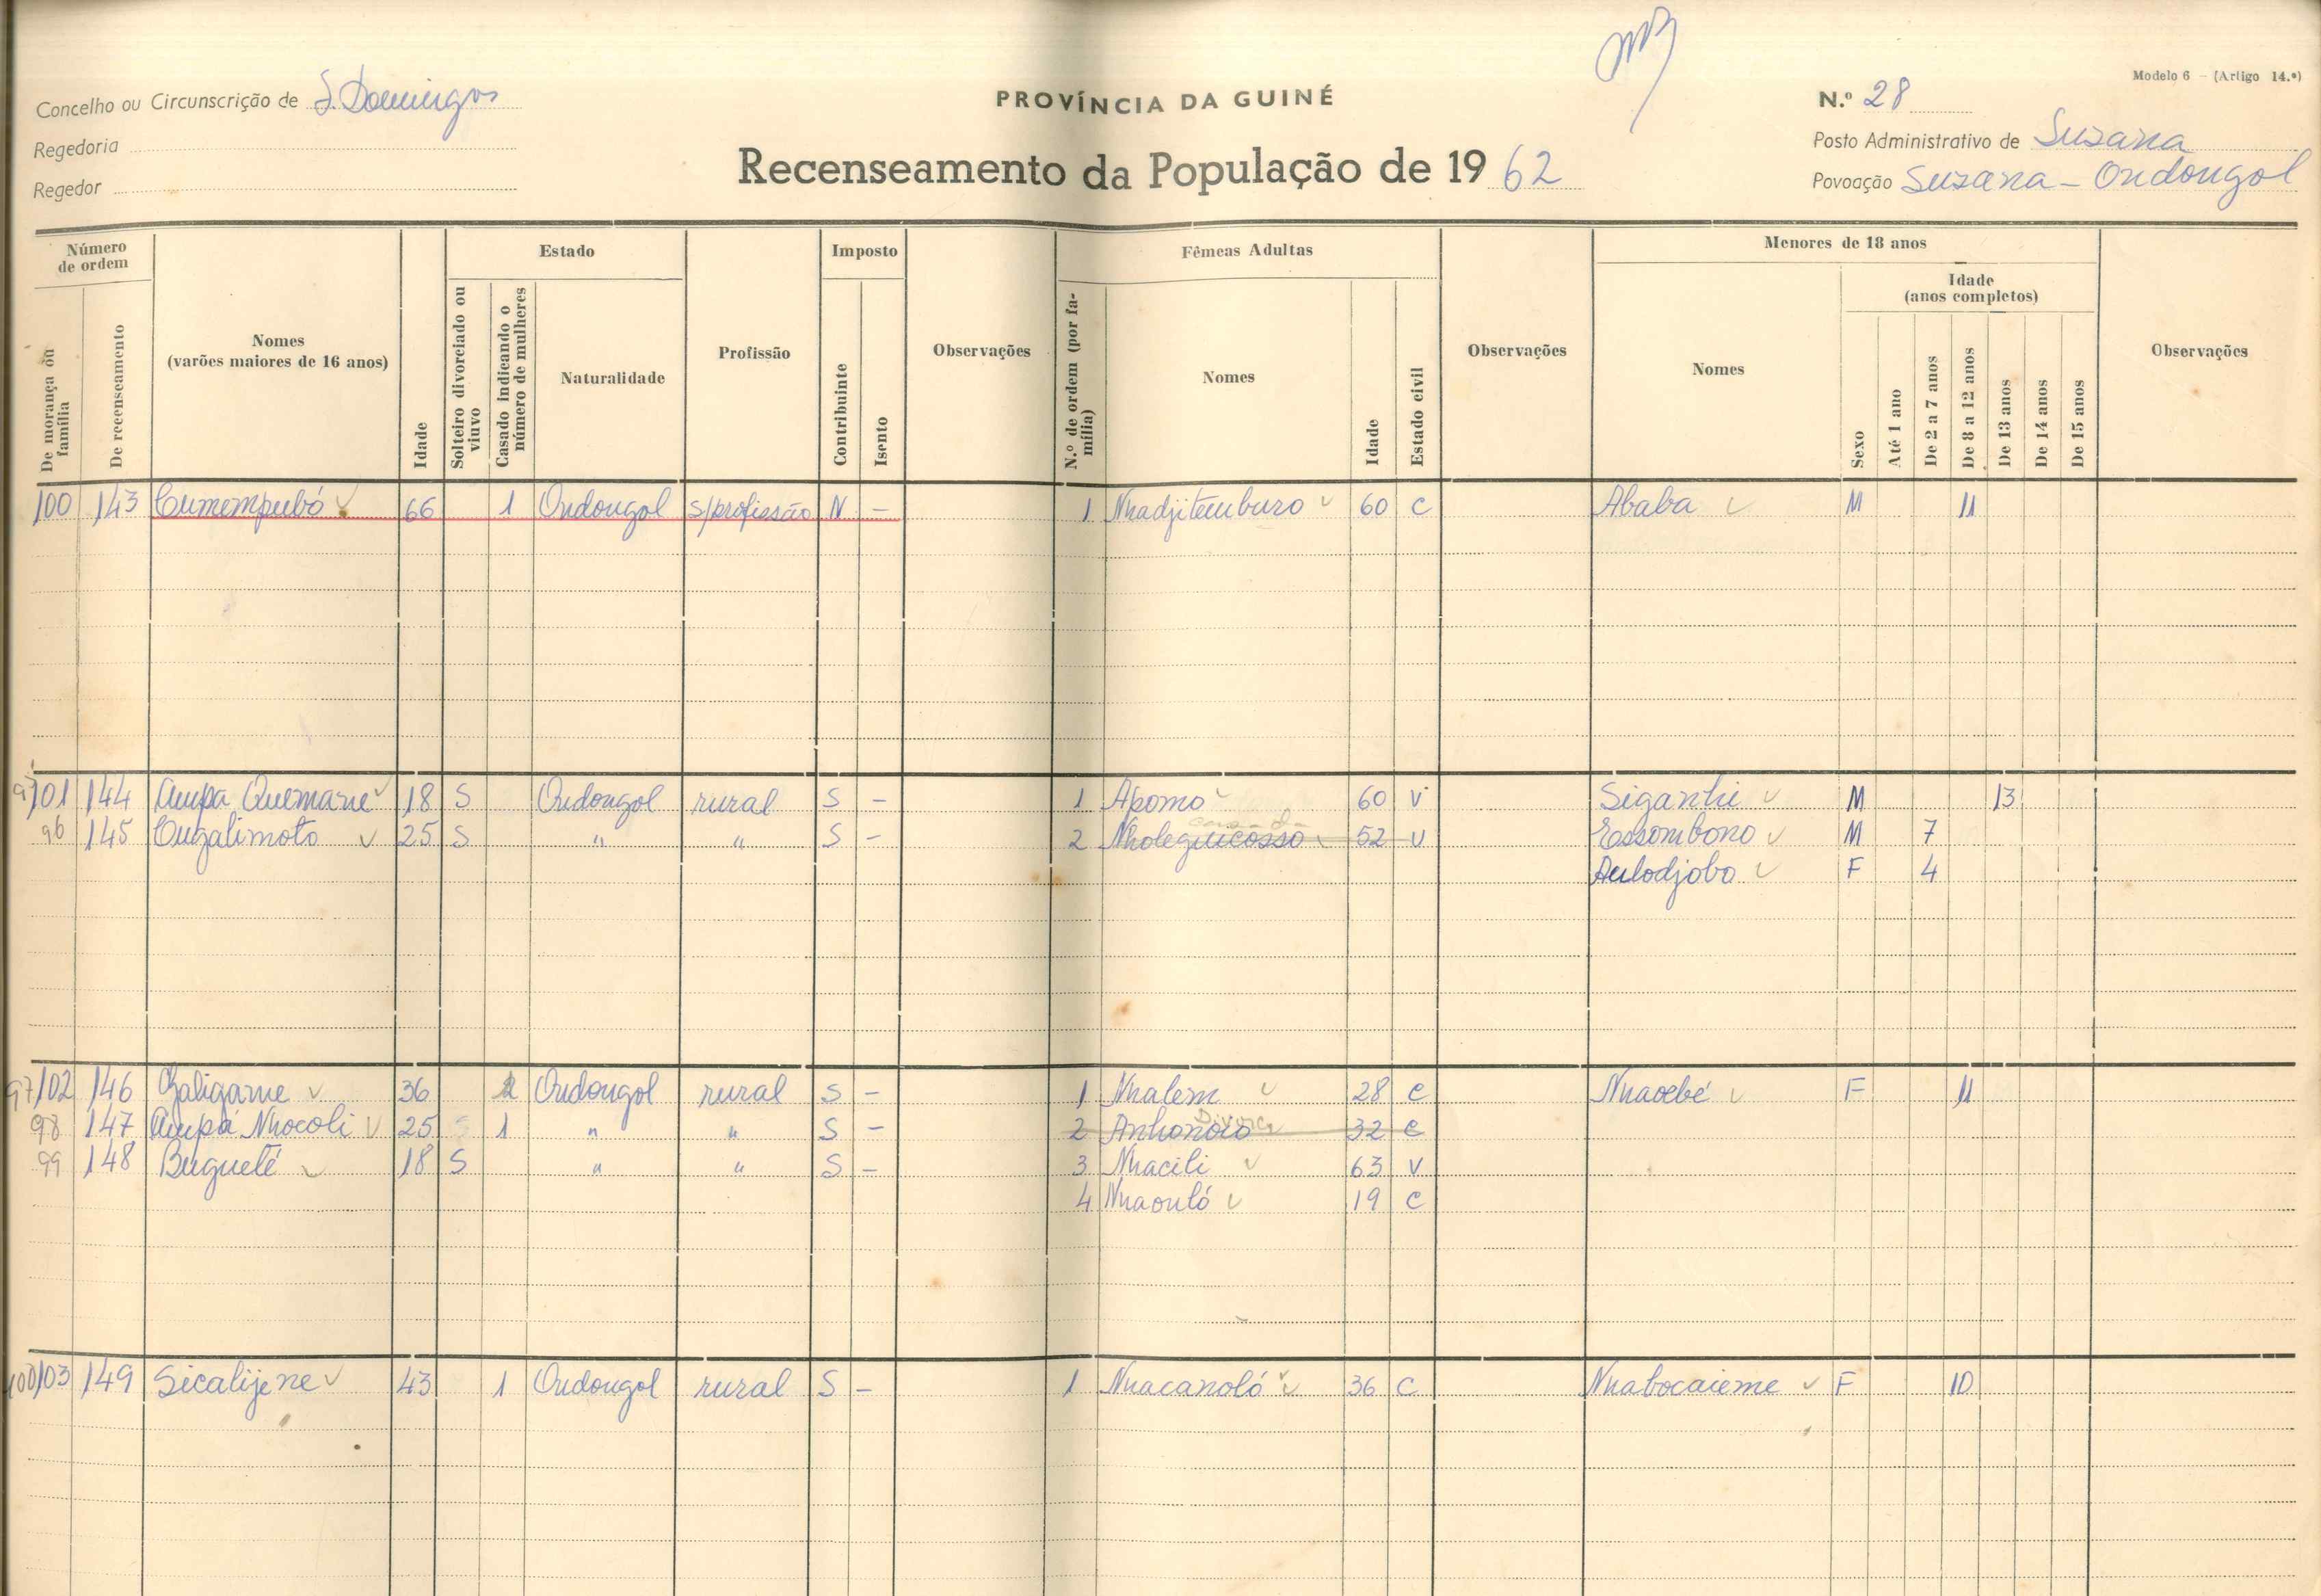 Modelo 6 — (Artigo 14.º)
Concelho ou Circunscrição de S. Domingos
PROVÍNCIA DA GUINÉ
N.º 28
Regedoria
Posto Administrativo de Suzana
Regedor
Recenseamento da População de 1962
Povoação Suzana - Ondongol
Número de ordem
Estado
Imposto
Fêmeas Adultas
Menores de 18 anos
De morança ou família
De recenseamento
Nomes
(varões maiores de 16 anos)
Idade
Solteiro divorciado ou viuvo
Casado indicando o número de mulheres
Naturalidade
Profissão
Contribuinte
Isento
Observações
N.º de ordem (por família)
Nomes
Idade
Estado civil
Observações
Nomes
Sexo
Idade
(anos completos)
Até 1 ano
De 2 a 7 anos
De 8 a 12 anos
De 13 anos
De 14 anos
De 15 anos
Observações
100 143 Cumempubó 66 1 Ondongol s/profissão N - 1 Nhadjitemburo 60 C Ababa M 11
101 144 Ampa Quemane 18 S Ondongol rural S - 1 Apomo 60 V Siganhi M 13
casada
96 145 Cugalimoto 25 S " " S - 2 Nholeguicosso 52 V Essombono M 7
Aulodjobo F 4
97 102 146 Galigame 36 2 Ondongol rural S - 1 Nhalem 28 C Nhaoebé F 11
98 147 Ampá Nhocoli 25 S 1 " " S - 2 Anhonoio 32 C
99 148 Buguelé 18 S " " S - 3 Nhacili 63 V
4 Nhaouló 19 C
100 103 149 Sicalijene 43 1 Ondongol rural S - 1 Nhacanoló 36 C Nhabocaieme F 10